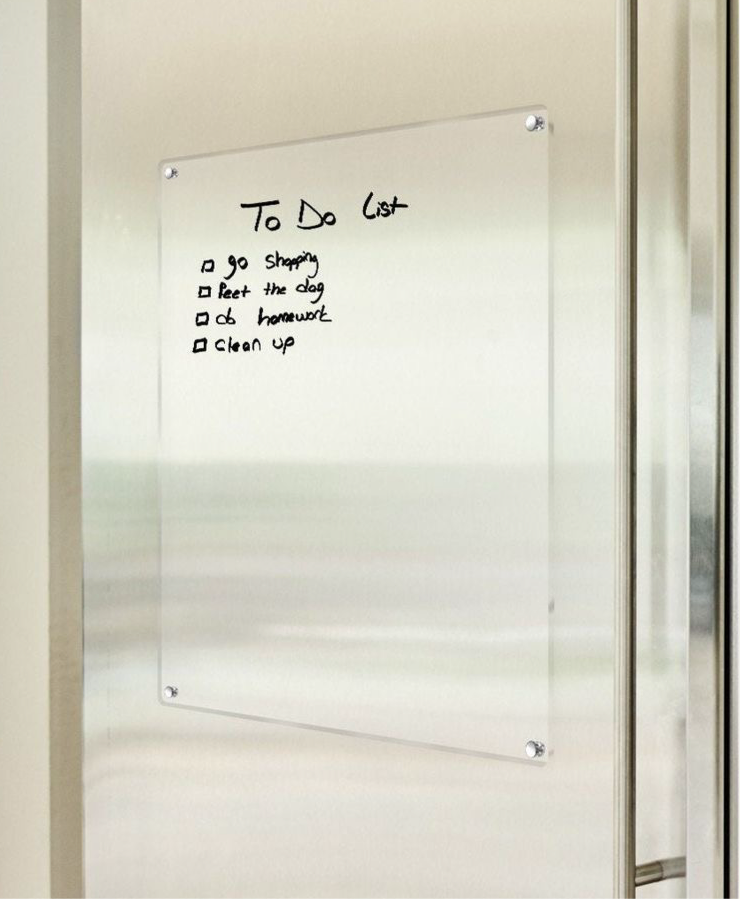 To Do List
go shopping
feet the dog
do homework
clean up